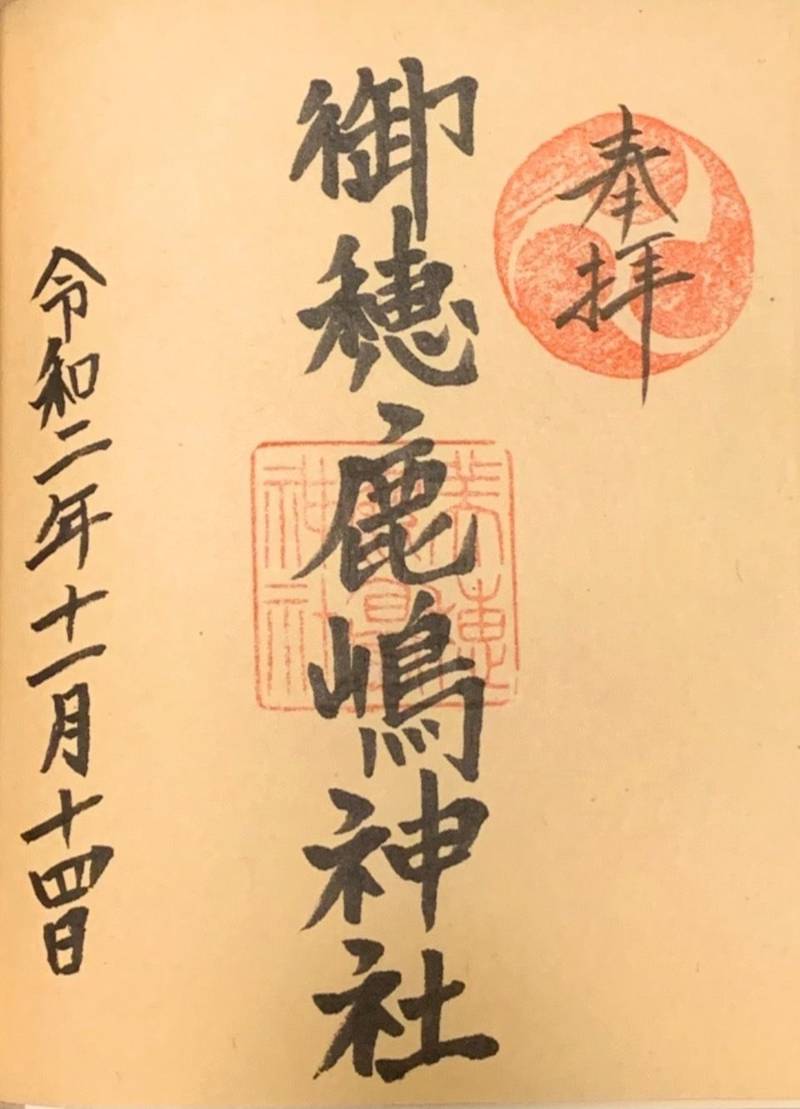 奉拝
御穂鹿嶋神社
令和二年十一月十四日